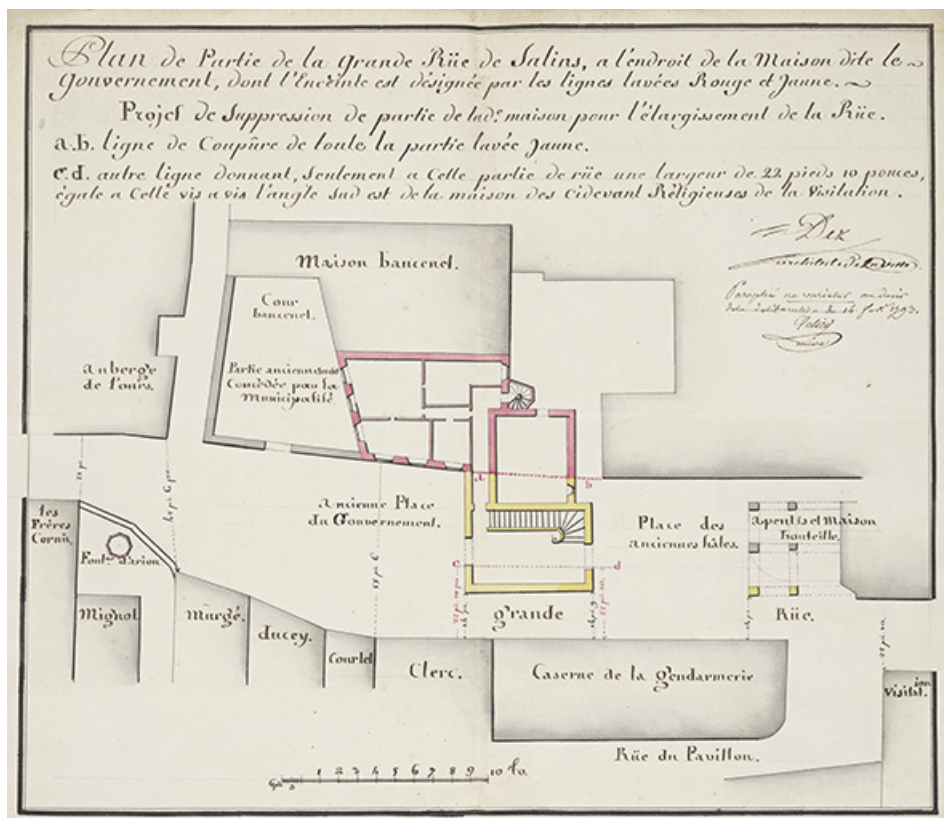 Plan de Partie de la Grande Rüe de Salins, a l'endroit de la Maison dite le
Gouvernement, dont l'Enceinte est désignée par les lignes lavées Rouge et Jaune.
Projet de Suppression de partie de lad.e maison pour l'étargissement de la Rüe.
a.b. ligne de Coupûre de toute la partie lavée Jaune.
c.d. autre ligne donnant, Seulement a Cette partie de rüe une largeur de 22 pieds 10 pouces,
égale a Celle vis a vis l'angle Sud est de la maison des cidevant Réligieuses de la Visitation.
Dez
architecte
Paraphé ne varietur au désir
de la déliberation du
maire
Maison bancenel.
Cour
bancenel.
Partie anciennement
Concédée par la
Municipalité
auberge
de l'ours.
a
b
ancienne Place
du Gouvernement.
Place des
anciennes hâles.
apentis et Maison
bouteille.
les
Frères
Cornu
Font.ne d'arion
c
d
grande
Rüe.
Mignot
Murgé.
ducey.
Courlet
Clerc.
Caserne de la gendarmerie
Visitation
Rüe du Pavillon.
1 2 3 4 5 6 7 8 9 10 to.